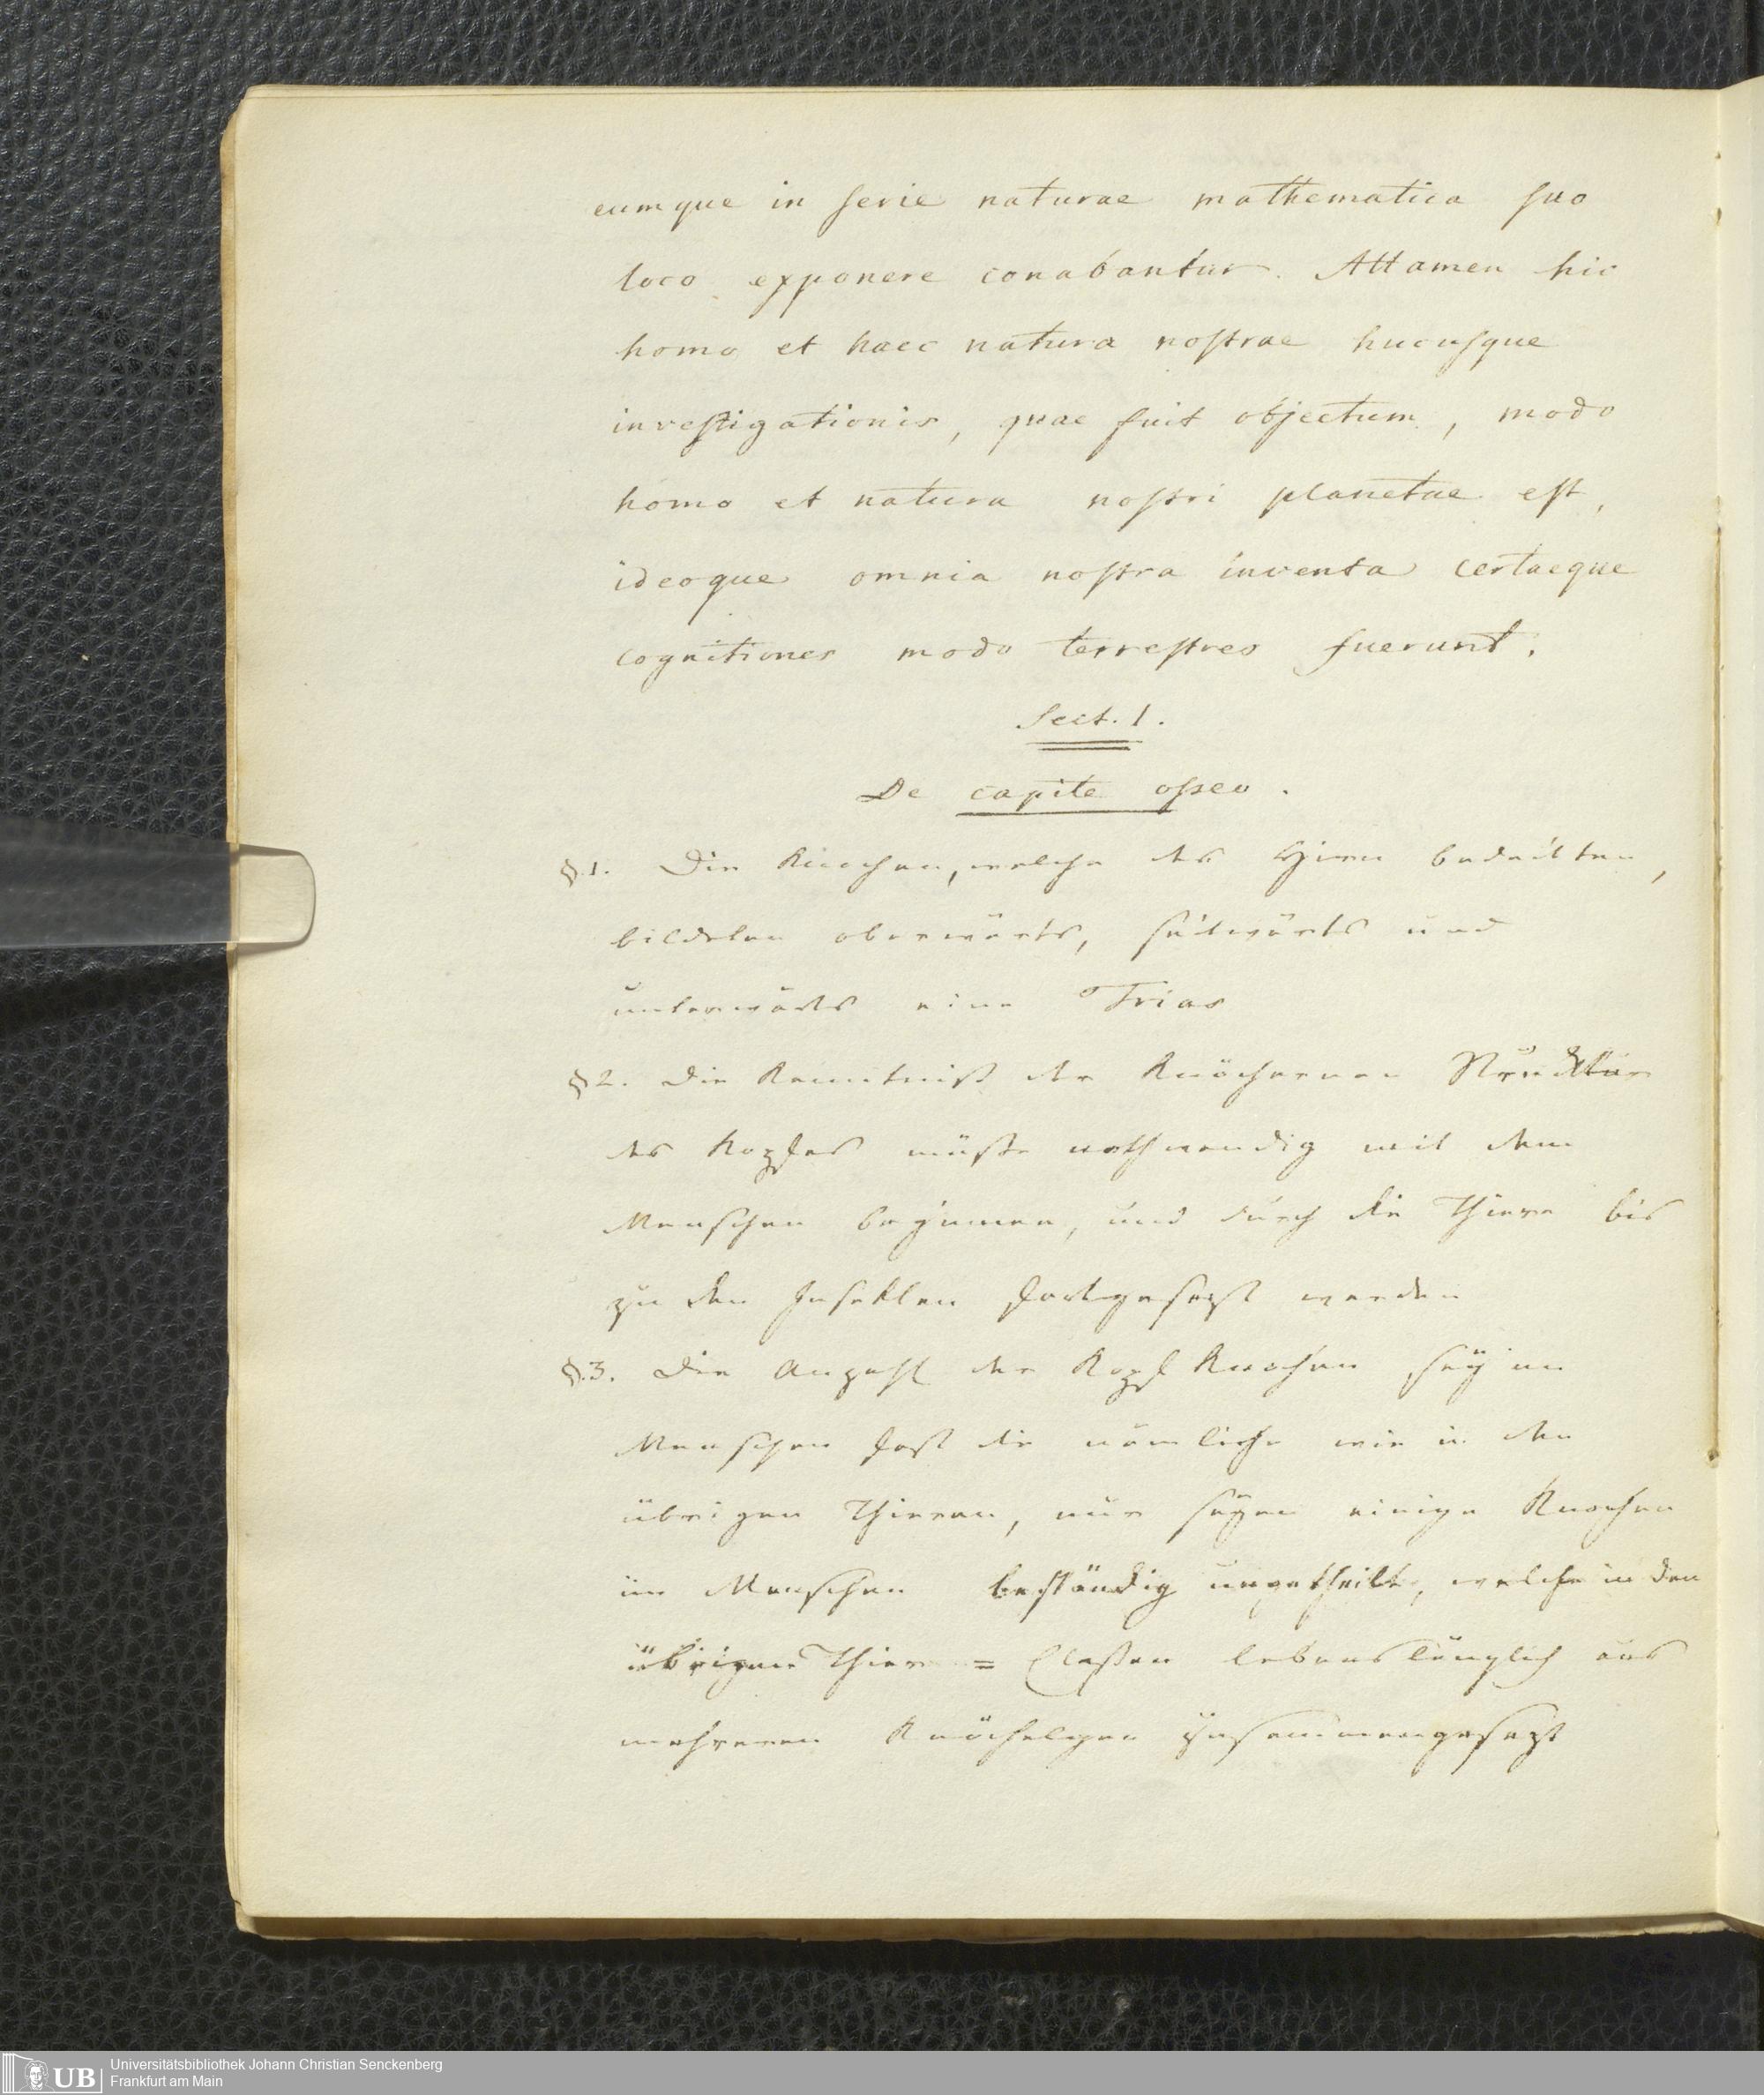 eumque in serie naturae mathematica suo
loco exponere conabantur. Attamen hic
homo et haec natura nostrae hucusque
investigationis, quae fuit objectum, modo
homo et natura nostri planetae est,
ideoque omnia nostra inventa certaeque
cognitiones modo terrestres fuerunt.
Sect. 1.
De capite osseo.
§.1. Die Knochen, welche das Hirn bedeckten,
bildeten oberwärts, seitwärts und
unterwärts eine Trias
§2. Die Kenntniß der Knöchernen Strucktur
des Kopfes müßte nothwendig mit dem
Menschen beginnen, und durch die Thiere bis
zu den Insekten fortgesezt werden
§.3. Die Anzahl der Kopf Knochen sey im
Menschen fast die nämliche wie in den
übrigen Thieren, nur seyen einige Knochen
im Menschen beständig ungetheilt, welche in den
übrigen Thier = Classen lebenslänglich aus
mehreren Knöchelgen zusammengesezt
Universitätsbibliothek Johann Christian Senckenberg
Frankfurt am Main
UB